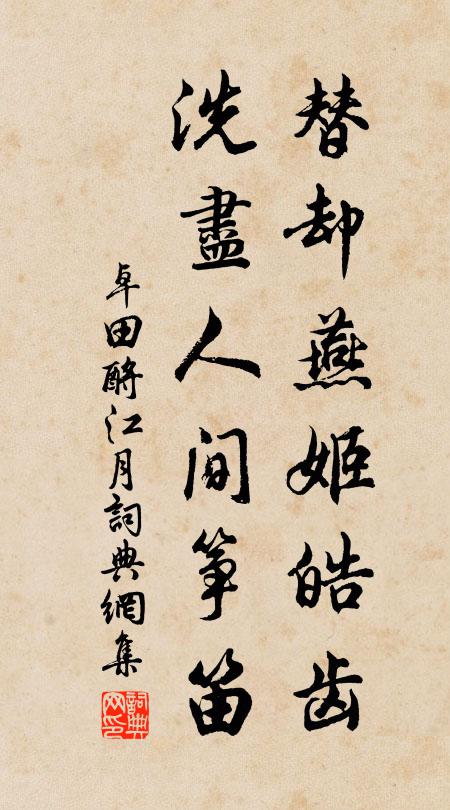 替却燕姬皓齿
洗盡人间筝笛
卓田酹江月詞典網集
詞典网印